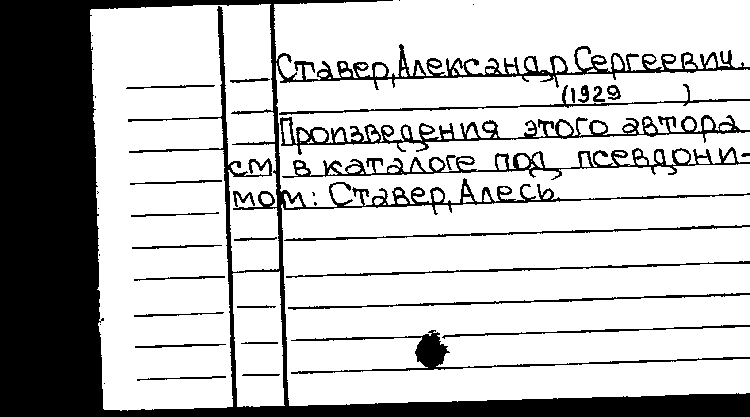 Ставер, Александр Сергеевич.
(1929 )
Произведения этого автора
см. в каталоге под псевдони-
мом: Ставер, Алесь.